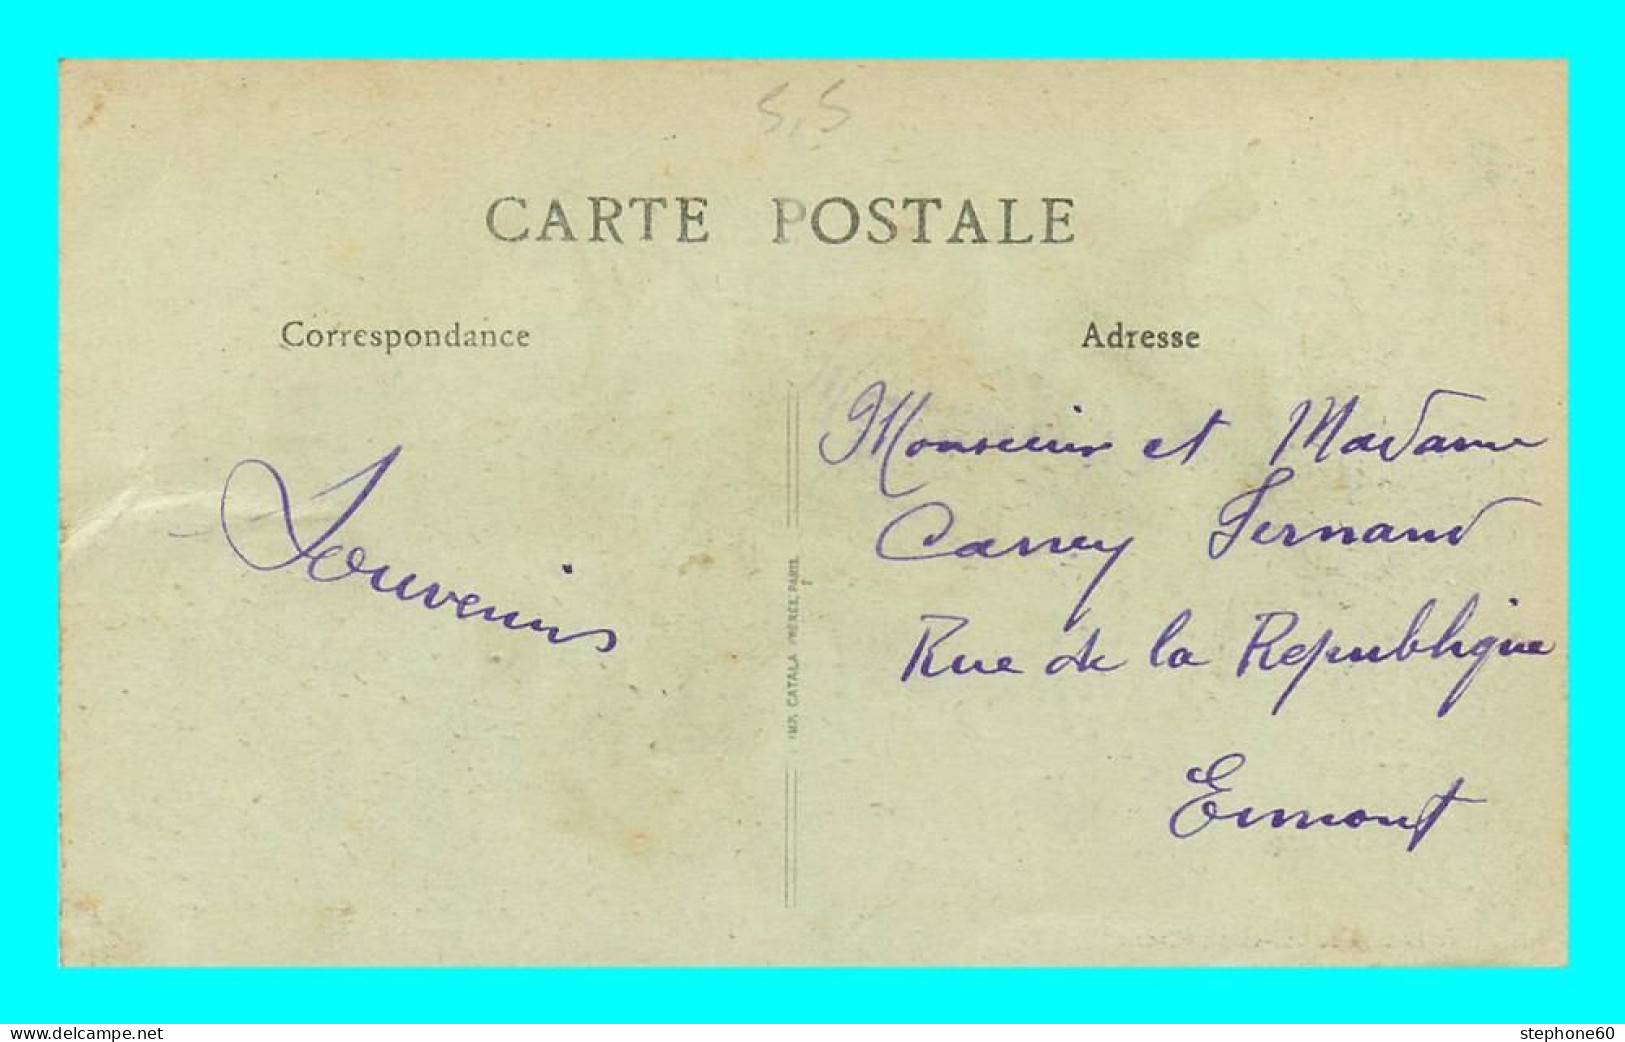 S,S
CARTE POSTALE
Correspondance
Adresse
Souvenirs
IMP. CATALA FRÈRES, PARIS
Monsieur et Madame
Carrey Fernand
Rue de la Republique
Ermont
www.delcampe.net
stephone60